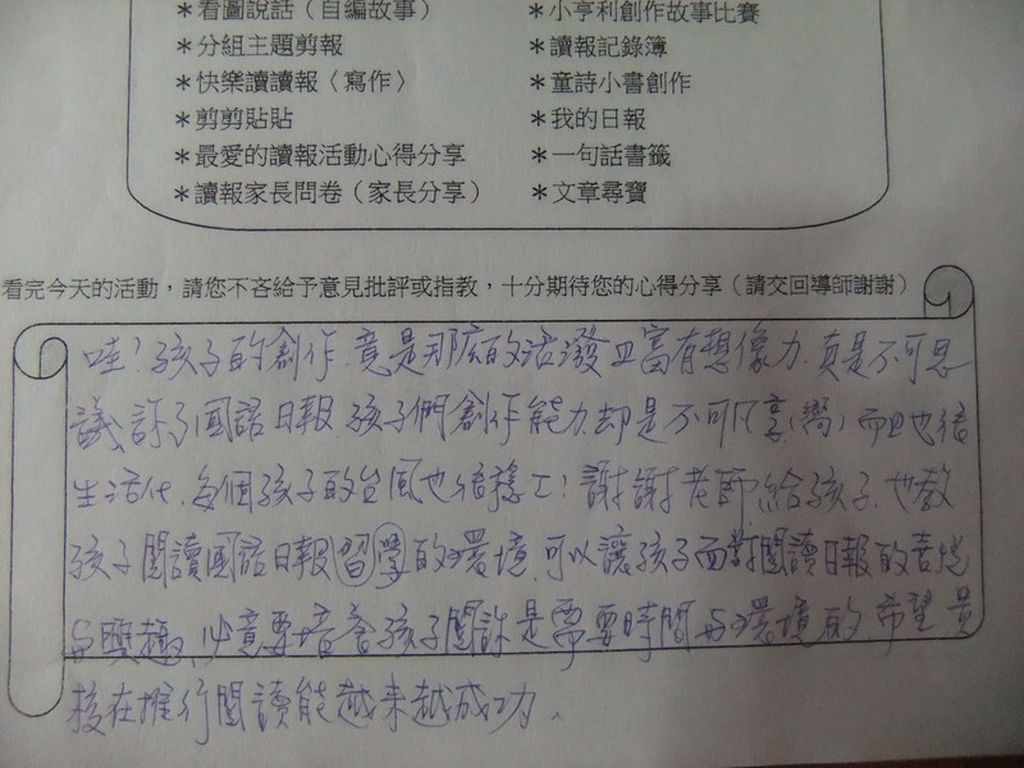 ＊看圖說話（自編故事） ＊小亨利創作故事比賽
＊分組主題剪報 ＊讀報記錄簿
＊快樂讀讀報〈寫作〉 ＊童詩小書創作
＊剪剪貼貼 ＊我的日報
＊最愛的讀報活動心得分享 ＊一句話書籤
＊讀報家長問卷（家長分享） ＊文章尋寶
看完今天的活動，請您不吝給予意見批評或指教，十分期待您的心得分享（請交回導師謝謝）
哇！孩子的創作，竟是那麼的活潑且富有想像力，真是不可思
議， 國語日報，孩子們創作能力，却是不可 （嚮）而且也很
生活化，每個孩子的台風也很穩重！謝謝老師給孩子，也教
孩子閱讀國語日報 的環境，可以讓孩子面對閱讀日報的喜悅
與興趣， 竟要培養孩子閱 是需要時間與環境的，希望貴
校在推行閱讀能越来越成功。